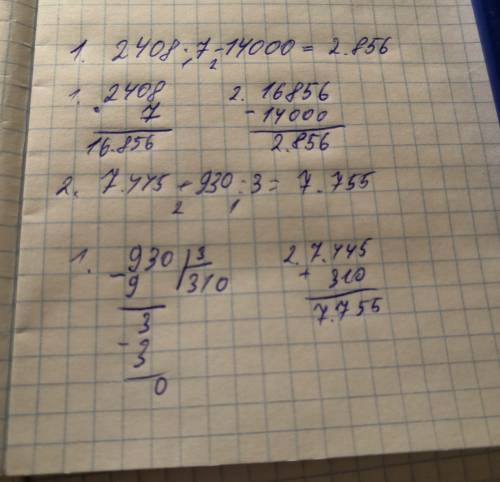 1. 2408 · 7 - 14000 = 2.856
1 2
1. 2408
· 7
16.856
2. 16856
- 14000
2.856
2. 7.445 + 930 : 3 = 7.755
2 1
1. - 930 | 3
9 310
3
- 3
0
2. 7.445
+ 310
7.755